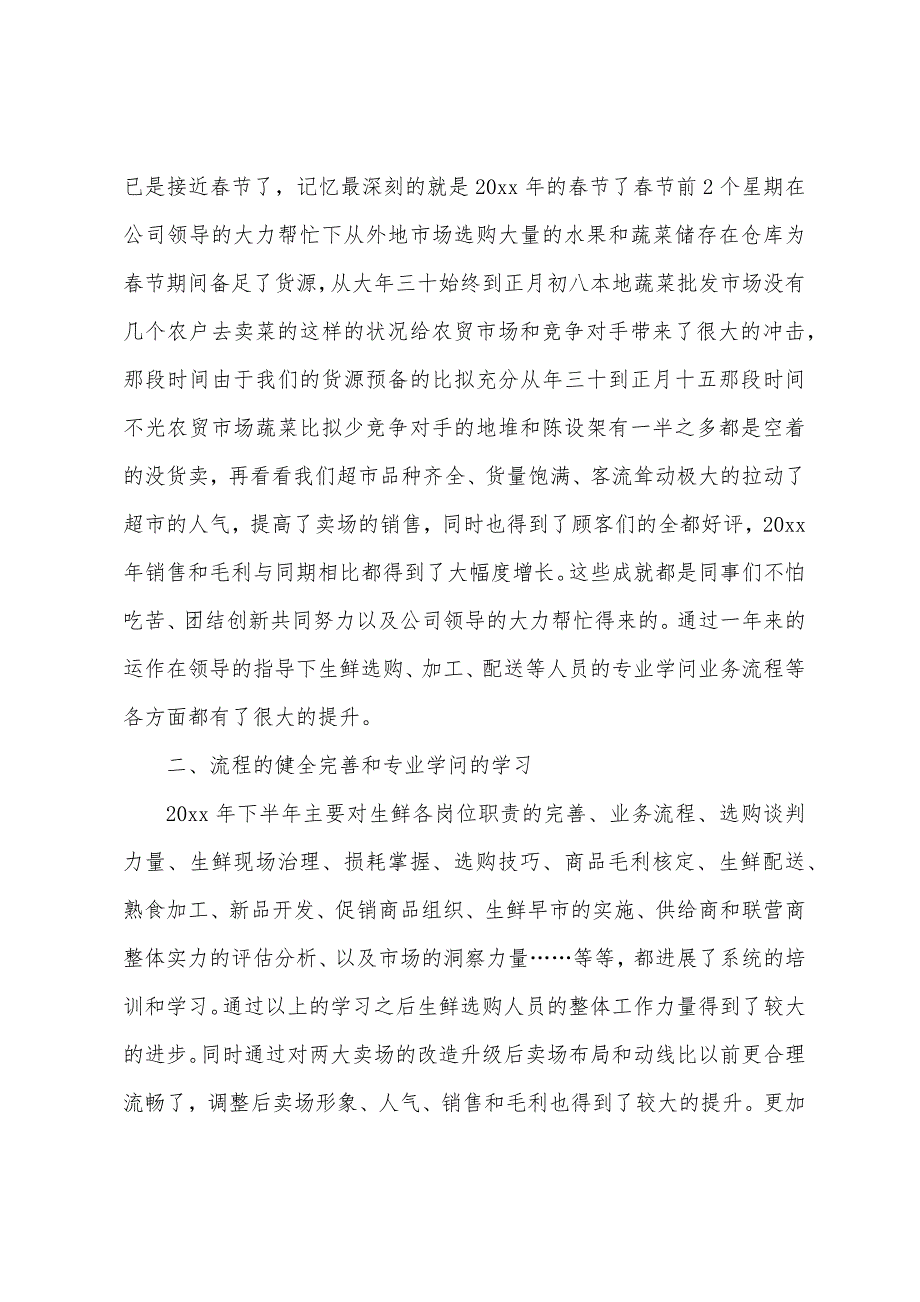 已是接近春节了，记忆最深刻的就是 20xx 年的春节了春节前 2 个星期在
公司领导的大力帮忙下从外地市场选购大量的水果和蔬菜储存在仓库为
春节期间备足了货源，从大年三十始终到正月初八本地蔬菜批发市场没有
几个农户去卖菜的这样的状况给农贸市场和竞争对手带来了很大的冲击，
那段时间由于我们的货源预备的比拟充分从年三十到正月十五那段时间
不光农贸市场蔬菜比拟少竞争对手的地堆和陈设架有一半之多都是空着
的没货卖，再看看我们超市品种齐全、货量饱满、客流耸动极大的拉动了
超市的人气，提高了卖场的销售，同时也得到了顾客们的全都好评，20xx
年销售和毛利与同期相比都得到了大幅度增长。这些成就都是同事们不怕
吃苦、团结创新共同努力以及公司领导的大力帮忙得来的。通过一年来的
运作在领导的指导下生鲜选购、加工、配送等人员的专业学问业务流程等
各方面都有了很大的提升。
二、流程的健全完善和专业学问的学习
20xx 年下半年主要对生鲜各岗位职责的完善、业务流程、选购谈判
力量、生鲜现场治理、损耗掌握、选购技巧、商品毛利核定、生鲜配送、
熟食加工、新品开发、促销商品组织、生鲜早市的实施、供给商和联营商
整体实力的评估分析、以及市场的洞察力量……等等，都进展了系统的培
训和学习。通过以上的学习之后生鲜选购人员的整体工作力量得到了较大
的进步。同时通过对两大卖场的改造升级后卖场布局和动线比以前更合理
流畅了，调整后卖场形象、人气、销售和毛利也得到了较大的提升。更加